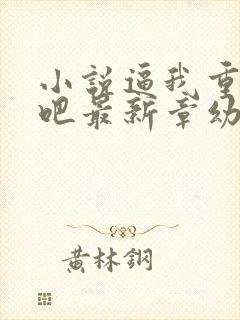 小說逼我重
吧最新章幼
黃林鋼